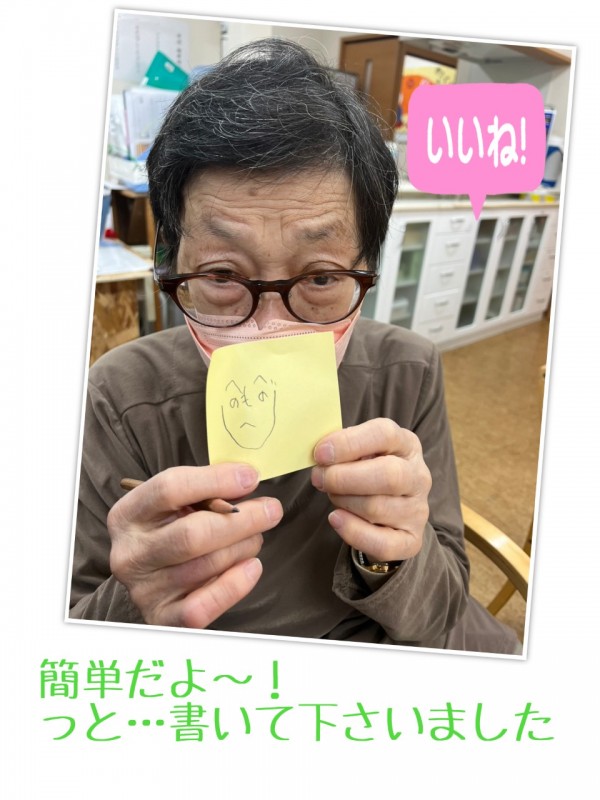 いいね!
へへ
のもの
へ
じ
簡単だよ～！
っと…書いて下さいました